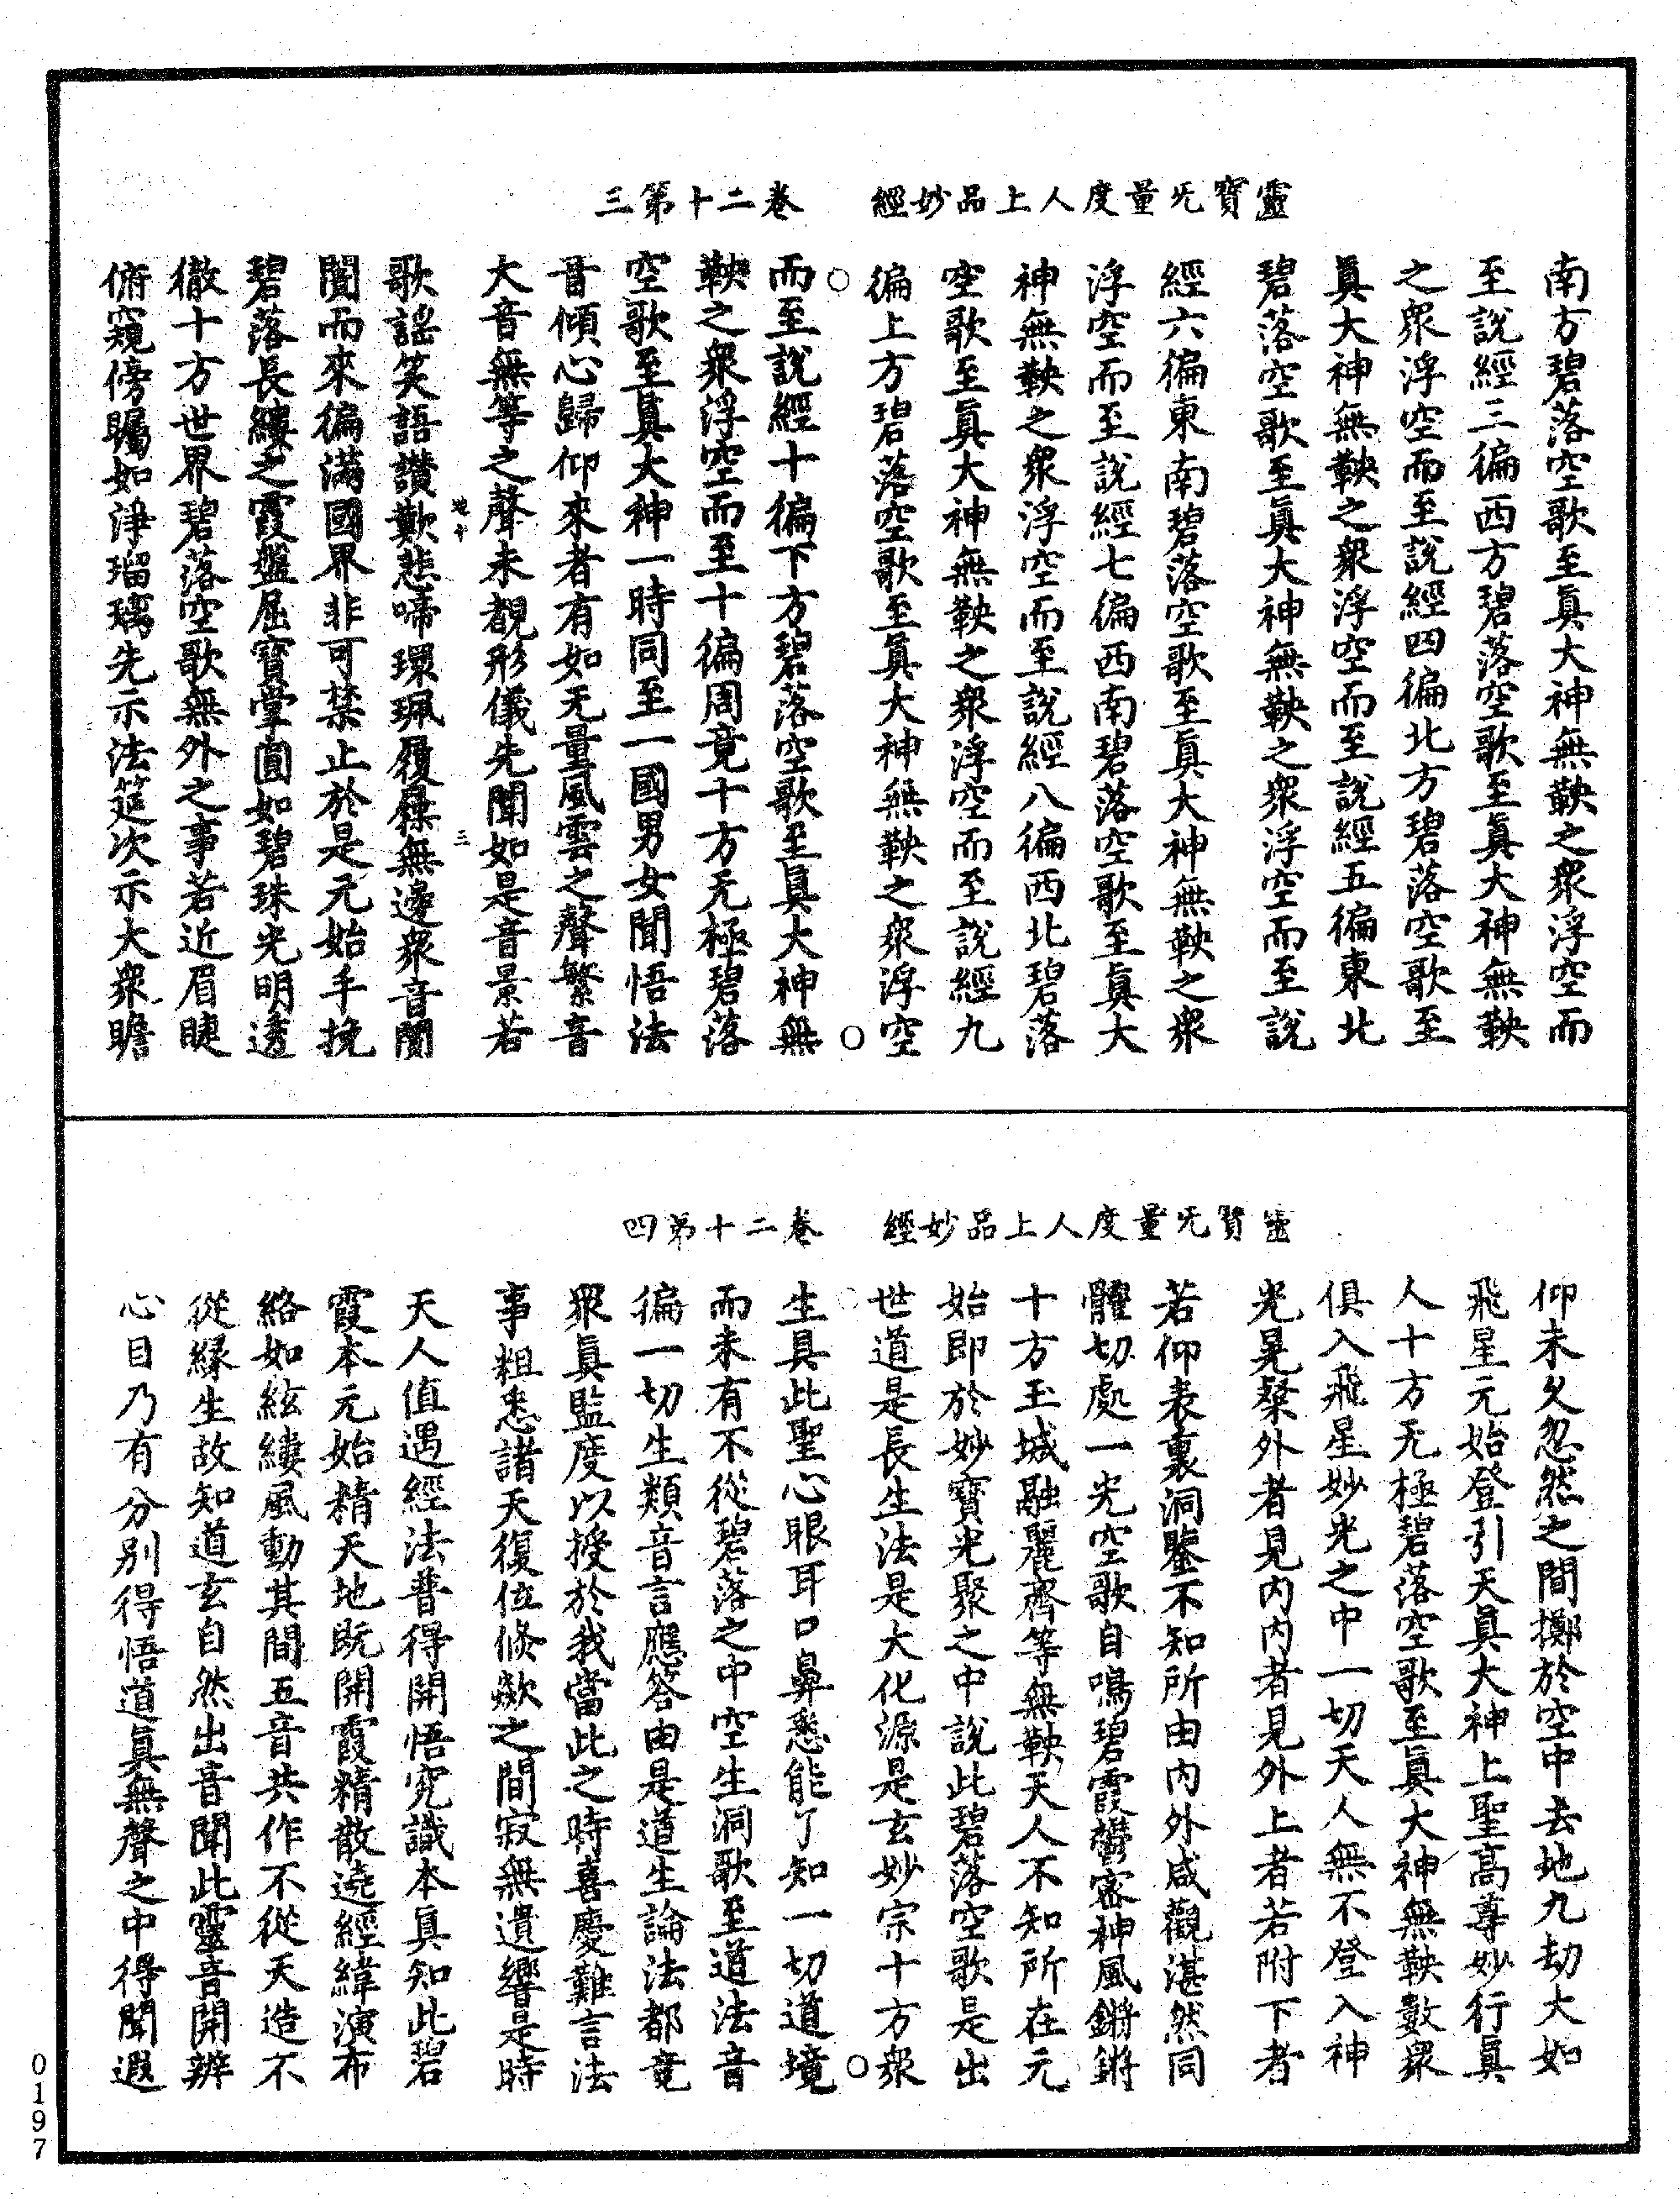 靈寶无量度人上品妙經　卷二十第三
南方碧落空歌至真大神無鞅之衆浮空而
至說經三徧西方碧落空歌至真大神無鞅
之衆浮空而至說經四徧北方碧落空歌至
真大神無鞅之衆浮空而至說經五徧東北
碧落空歌至真大神無鞅之衆浮空而至說
經六徧東南碧落空歌至真大神無鞅之衆
浮空而至說經七徧西南碧落空歌至真大
神無鞅之衆浮空而至說經八徧西北碧落
空歌至真大神無鞅之衆浮空而至說經九
徧上方碧落空歌至真大神無鞅之衆浮空
而至說經十徧下方碧落空歌至真大神無
鞅之衆浮空而至十徧周竟十方无極碧落
空歌至真大神一時同至一國男女聞悟法
音傾心歸仰來者有如无量風雲之聲繁音
大音無等之聲未覩形儀先聞如是音景若
三
歌謠笑語讃歎悲啼環珮履屧無邊衆音闐
闐而來徧滿國界非可禁止於是元始手挽
碧落長縷之霞盤屈寶掌圓如碧珠光明透
徹十方世界碧落空歌無外之事若近眉睫
俯窺傍矚如淨瑠璃先示法筵次示大衆瞻
靈寶无量度人上品妙經　卷二十第四
仰未久忽然之間擲於空中去地九劫大如
飛星元始登引天真大神上聖高尊妙行真
人十方无極碧落空歌至真大神無鞅數衆
俱入飛星妙光之中一切天人無不登入神
光晃粲外者見内内者見外上者若附下者
若仰表裏洞鑒不知所由内外咸觀湛然同
體切處一光空歌自鳴碧霞欝密神風鏘鏘
十方玉城融麗齊等無鞅天人不知所在元
始即於妙寶光聚之中說此碧落空歌是出
世道是長生法是大化源是玄妙宗十方衆
生具此聖心眼耳口鼻悉能了知一切道境
而未有不從碧落之中空生洞歌至道法音
徧一切生類音言應答由是道生論法都竟
衆真監度以授於我當此之時喜慶難言法
事粗悉諸天復位倏歘之間寂無遺響是時
天人值遇經法普得開悟究識本真知此碧
霞本元始精天地既開霞精散遶經緯演布
絡如絃縷風動其間五音共作不從天造不
從緣生故知道玄自然出音聞此靈音開辨
心目乃有分别得悟道真無聲之中得聞遐
0197